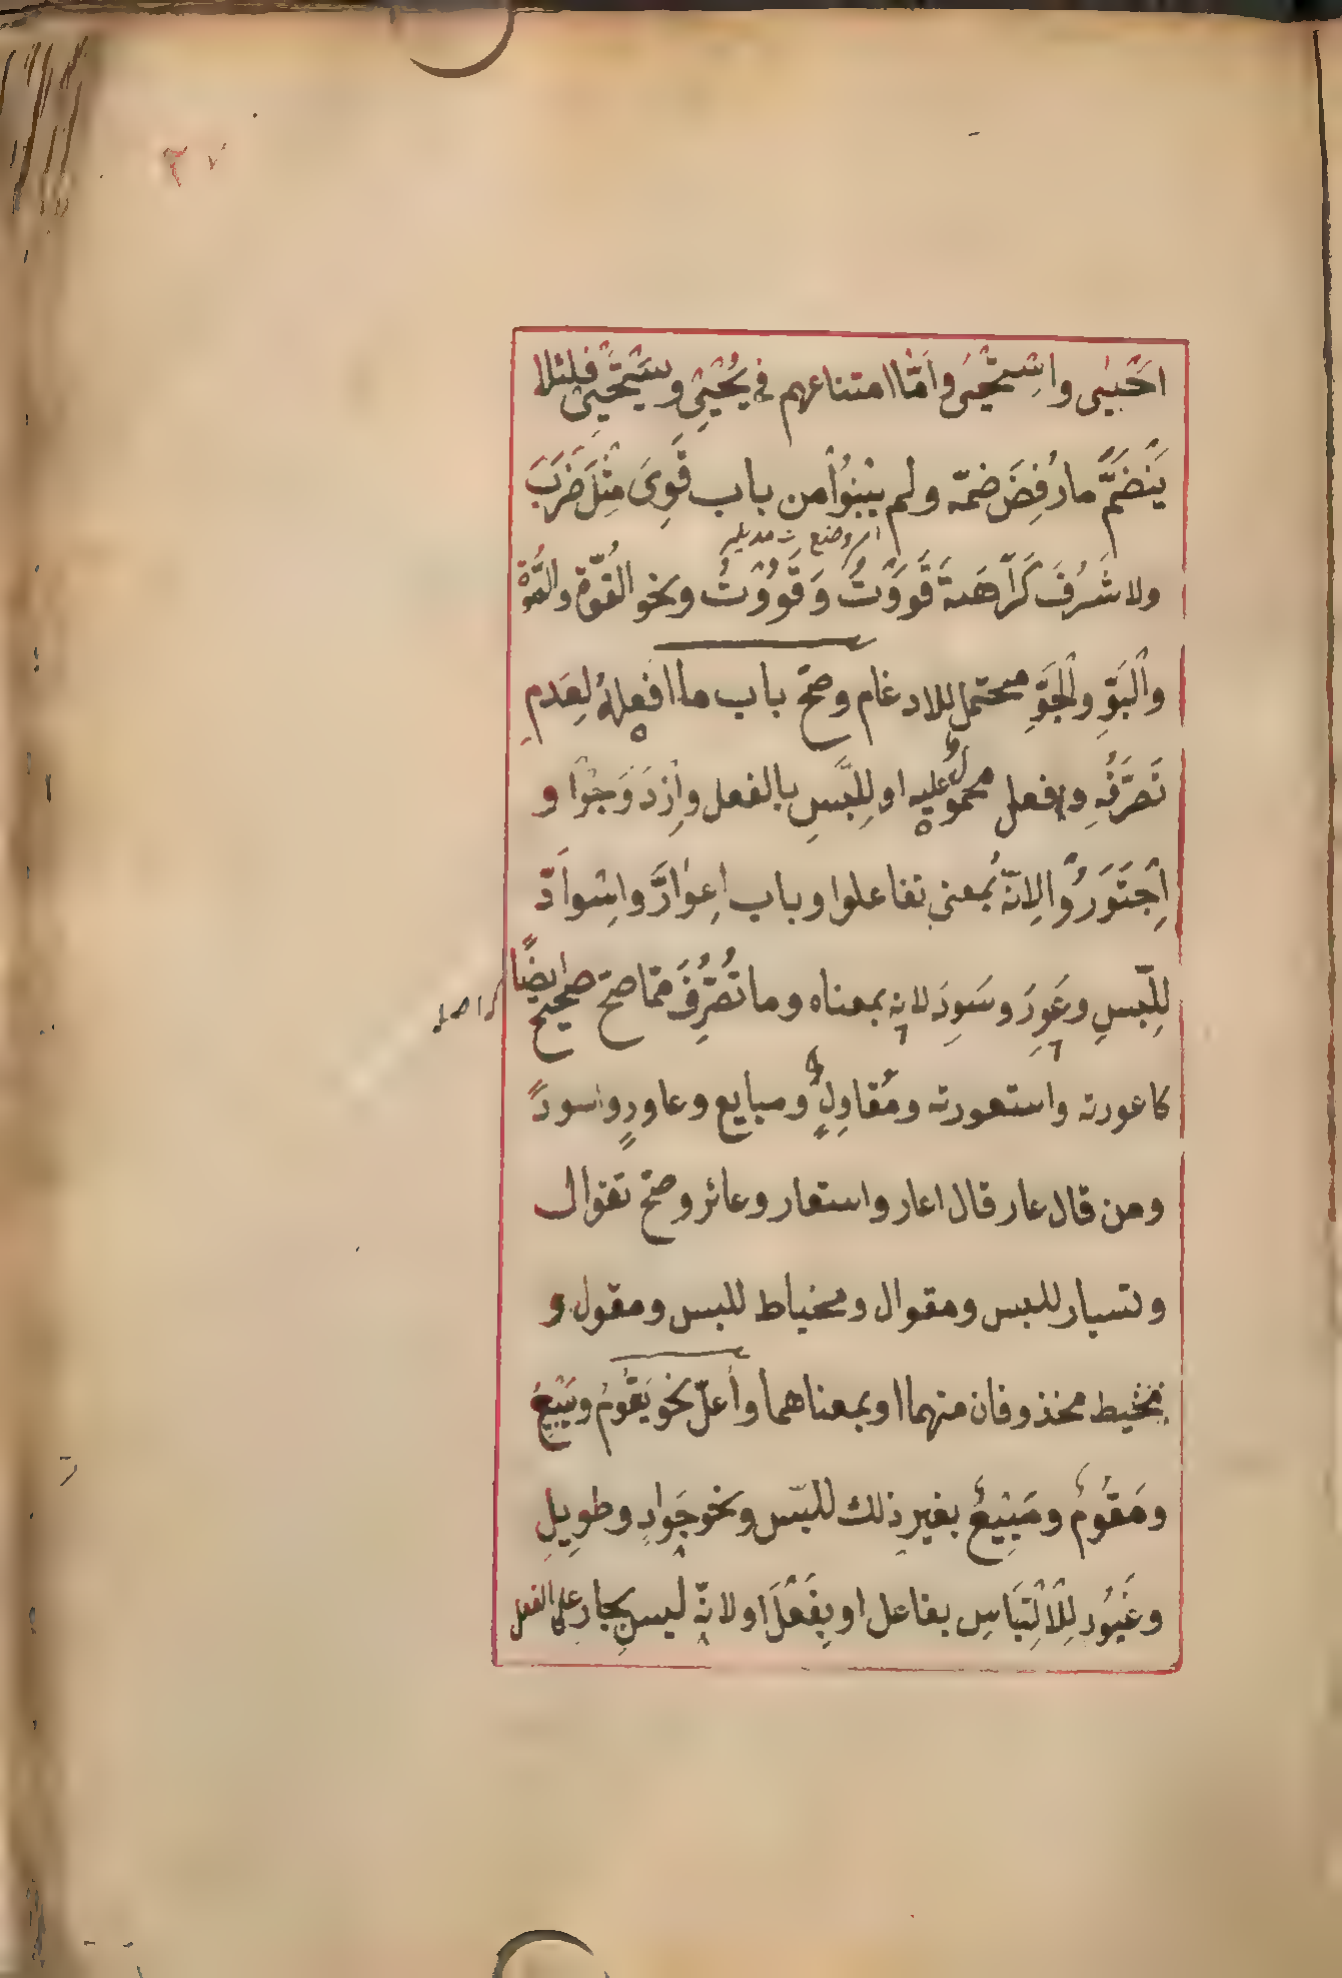 ٢٧
احيى واستحيى وامّا امتناعهم في يُحْيِى ويستحيى فلئلا
يَنْضَمَّ ما رُفِضَ ضمّه ولم يبنُوْا من باب قَوِىَ مثلَ ضَرَبَ
ولا شَرُفَ كَرَاهَةَ قَوَوْتُ وَقَوُوْتُ ونحو القُوَّة والصُّوَّة
والبَوِّ والجَوِّ محتمل للادغام وصحّ باب ما افعلهُ لعَدمِ
تَصَرُّفِهِ وافعل محمولٌ عليه او للَّبسِ بالفعل وازْدَوَجُوْا و
اِجْتَوَرُوْا لانّهُ بمعنى تفاعلوا وباب اِعوَارَّ واسْوَادَّ
للَّبسِ وعَوِرَ وسَوِدَ لانه بمعناه وما تُصُرِّفَ ممّا صحّ صحيح ايضًا
كاعورته واستعورته ومُقاوِلٍ ومبايع وعاورٍ واسودَ
ومن قال عار قال اعار واستعار وعائر وصحّ تقوال
وتسيار للبس ومقوال ومخياط للبس ومقول و
مخيط محذوفان منهما او بمعناهما واُعلّ نحو يَقُوْمُ ويَبِيْعُ
ومَقُوْمٌ ومَبِيْعٌ بغيرِ ذلك للبس ونحو جَوادٍ وطوِيلٍ
وغَيُورٍ لِلْاِلْتِبَاسِ بفاعل او بِفَعَلَ او لانّه ليس بجارٍ على الفعل